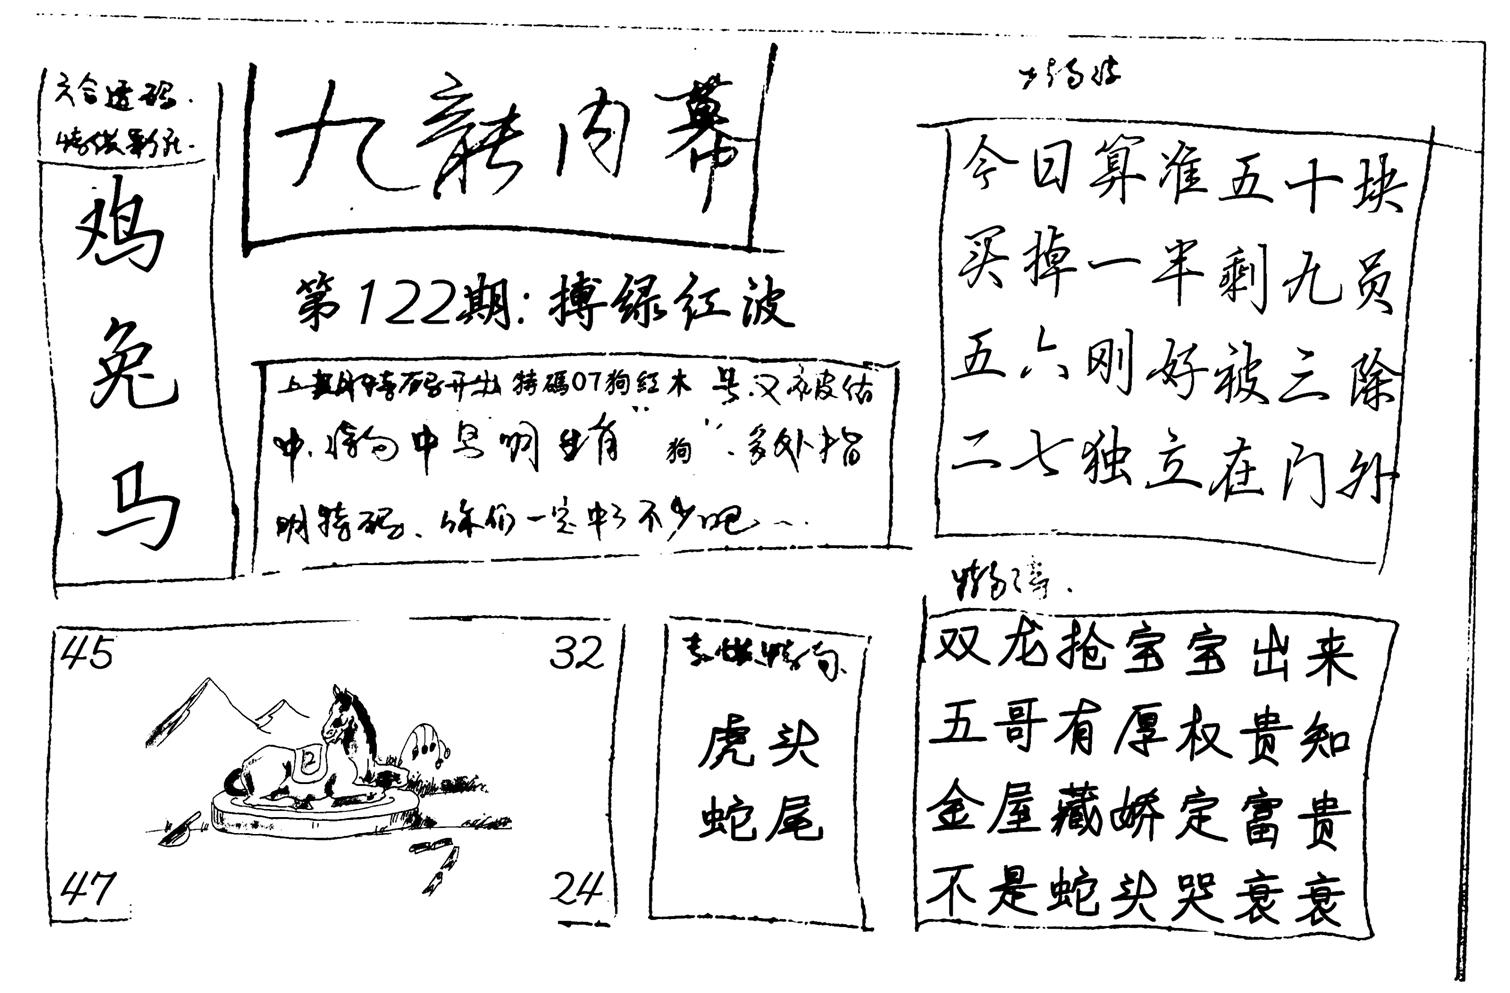 六合透码.
九龙内幕
鸡
兔
马
第122期:搏绿红波
上期特码开出特碼07狗红木号.又被估
中.特句中号明生肖"狗".多处指
明特码、你们一定中了不少吧
今日算准五十块
买掉一半剩九员
五六刚好被三除
二七独立在门外
45
32
12
47
24
虎头
蛇尾
双龙抢宝宝出来
五哥有厚权贵知
金屋藏娇定富贵
不是蛇头哭衰衰